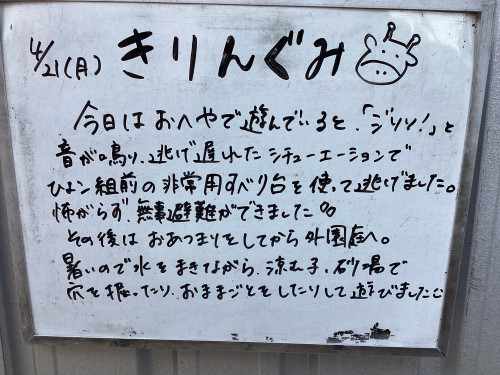 4/21(月) きりんぐみ
今日はおへやで遊んでいると、「ジリリ!」と
音が鳴り、逃げ遅れたシチューエーションで
ひよこ組前の非常用すべり台を使って逃げました。
怖がらず、無事避難ができました
その後はおあつまりをしてから外園庭へ。
暑いので水をまきながら、涼む子、砂場で
穴を掘ったり、おままごとをしたりして遊びました